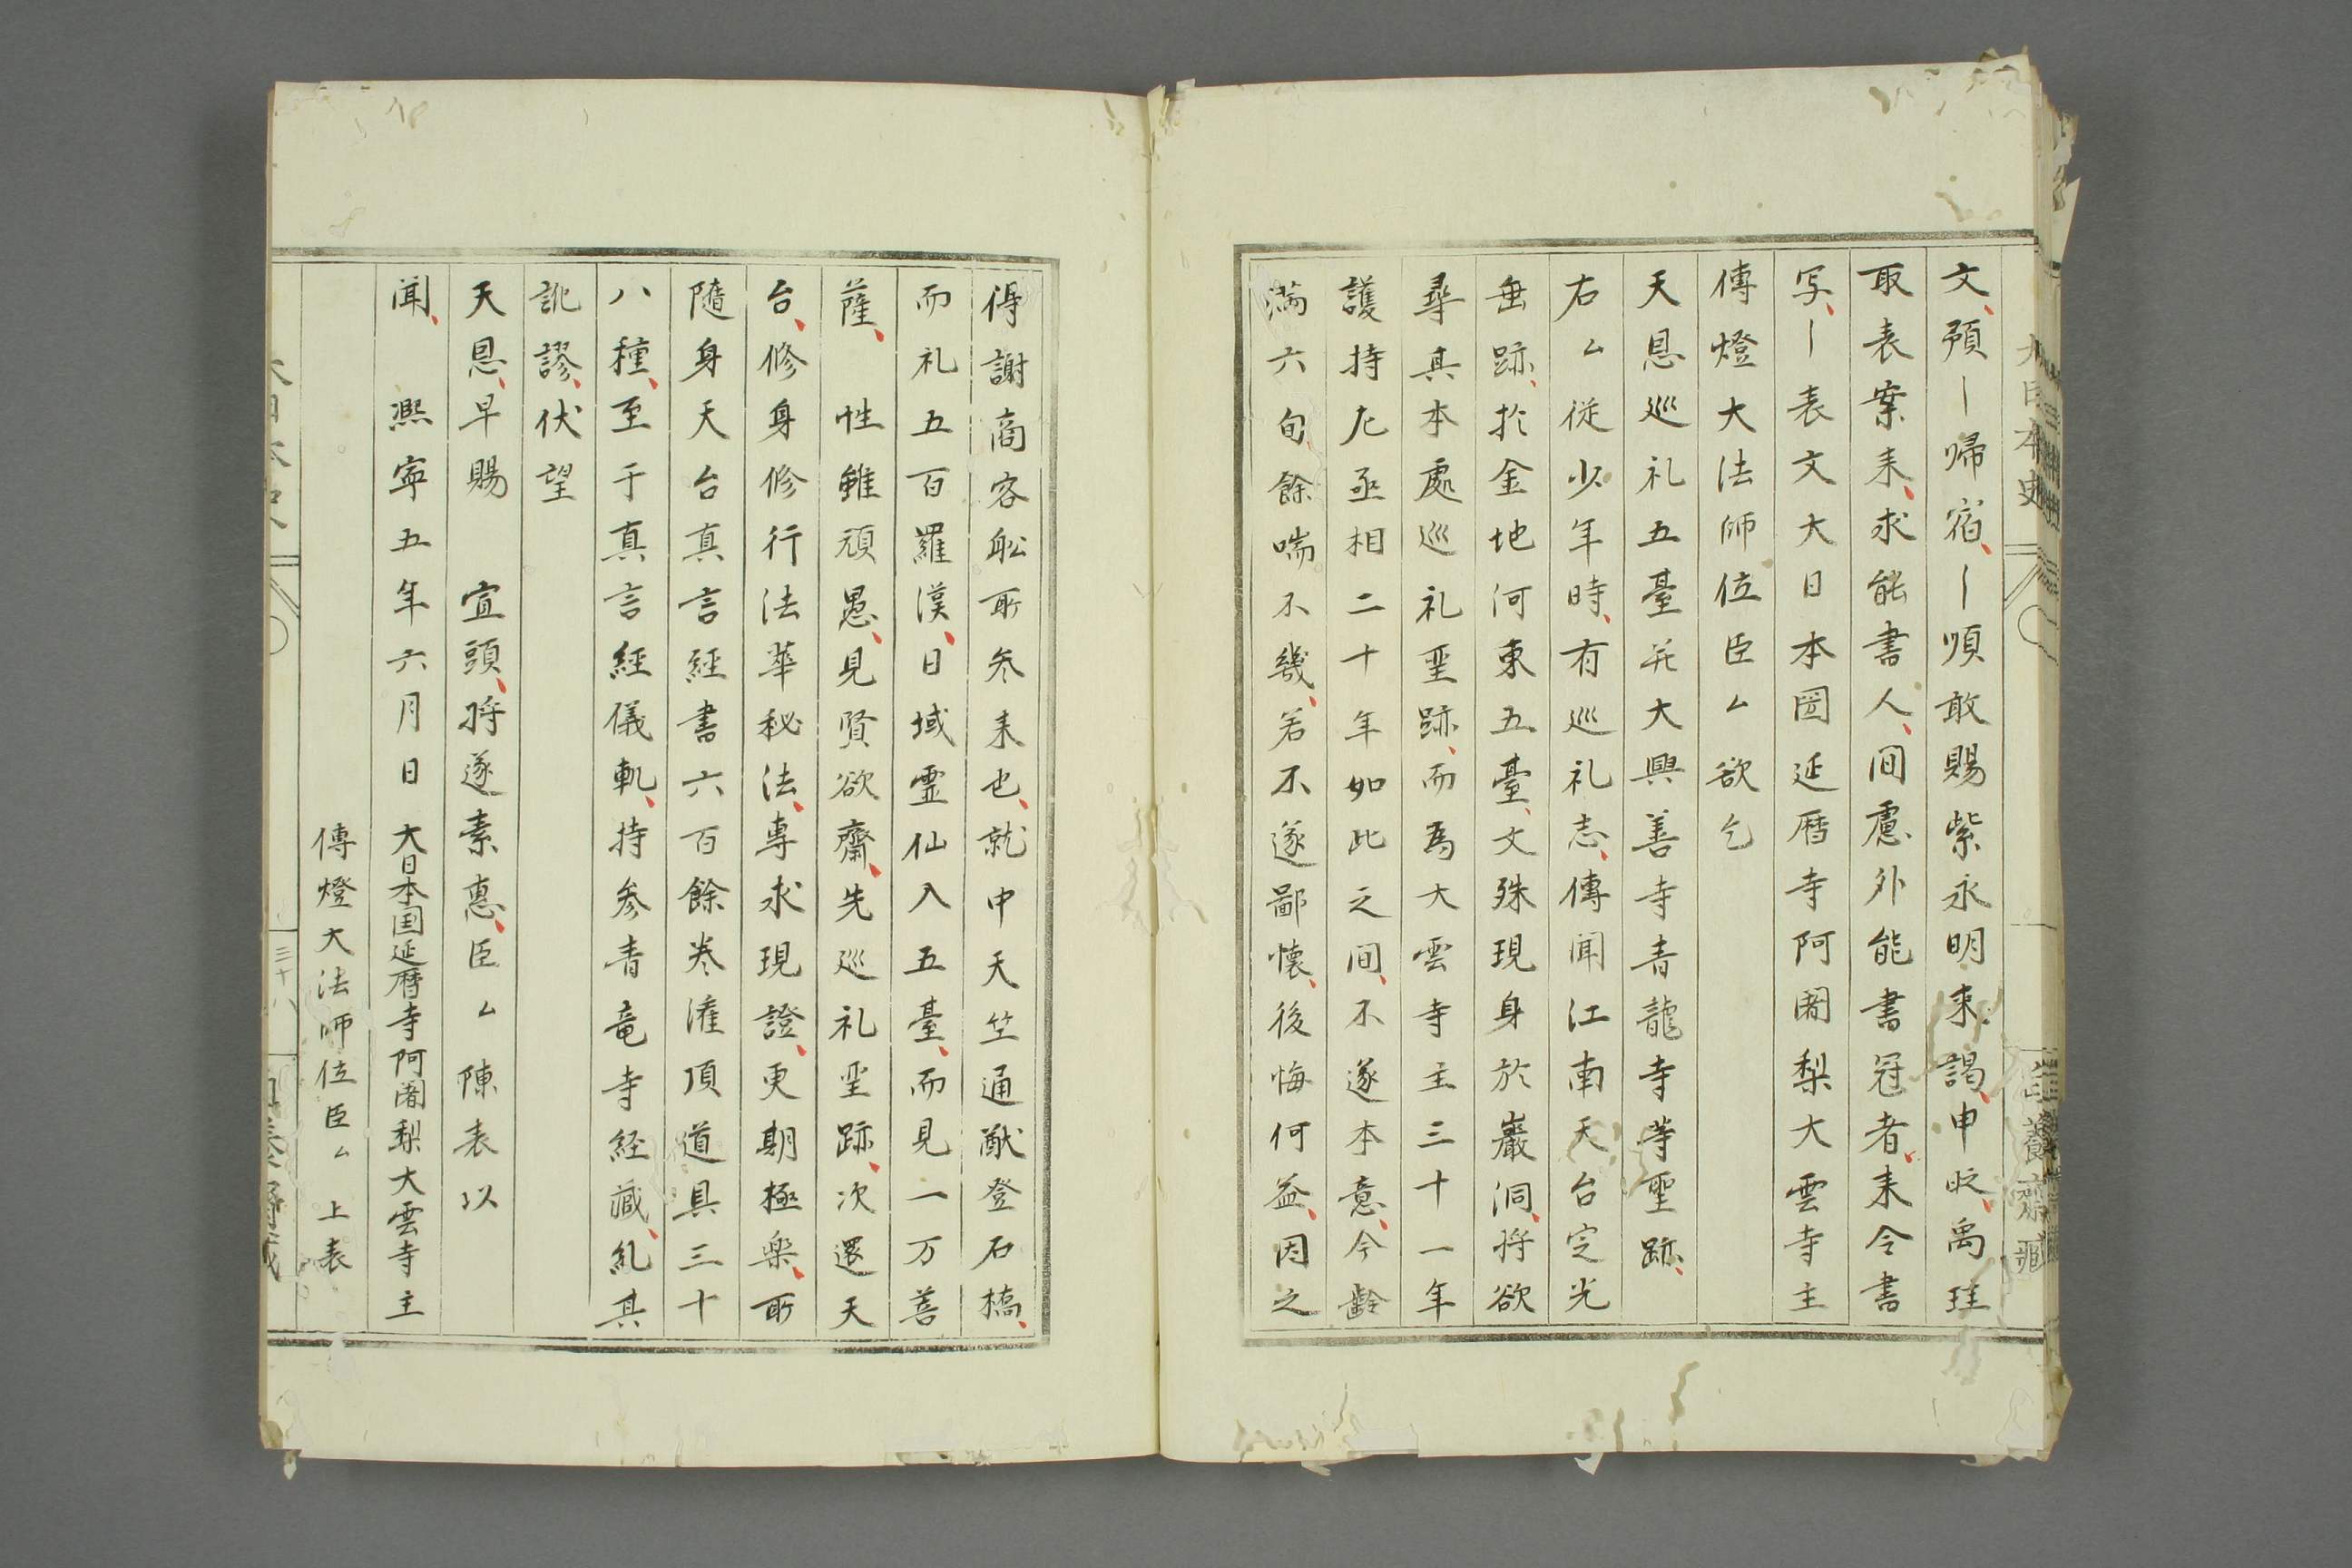 文、預〡帰宿、〡順敢賜紫永明来謁、申㫖、禹珪
取表案来、求能書人、間慮外能書冠者、来今書
写、〡表文大日本国延暦寺阿闍梨大雲寺主
傳燈大法師位臣厶欲乞
天恩巡礼五臺并大興善寺青龍寺等聖跡、
右厶従少年時、有巡礼志、傳聞江南天台定光
垂跡、於金地河東五臺、文殊現身於巖洞、将欲
尋其本處巡礼聖跡、而為大雲寺主三十一年
護持左丞相二十年如此之間、不遂本意、今齡
満六旬、餘喘不幾、若不遂鄙懷、後悔何益、因之
得謝商客船所参来也、就中天竺通猷登石橋、
而礼五百羅漢、日域霊仙入五臺、而見一万菩
薩、　性雖頑愚、見賢欲齋、先巡礼聖跡、次還天
台、修身修行法華秘法、專求現證、更期極楽、所
隨身天台真言經書六百餘巻灌頂道具三十
八種、至于真言經儀軌、持参青竜寺経藏、糺其
訛謬、伏望
天恩、早賜　宣頭、将遂素恵、臣厶陳表以
聞、　熈寧五年六月日　大日本国延暦寺阿闍梨大雲寺主
傳燈大法師位臣厶　上表
大日本史
三十八